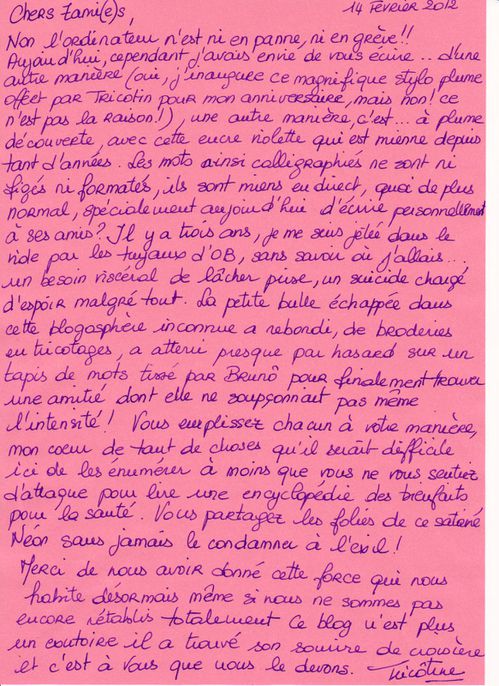 Chers Zami(e)s, 14 Février 2012
Non l'ordinateur n'est ni en panne, ni en grève!!
Aujourd'hui, cependant j'avais envie de vous écrire.. d'une
autre manière (oui, j'inaugure ce magnifique stylo plume
offert par Tricotin pour mon anniversaire, mais non! ce
n'est pas la raison!), une autre manière, c'est... à plume
découverte, avec cette encre violette qui est mienne depuis
tant d'années. Les mots ainsi calligraphiés ne sont ni
figés ni formatés, ils sont miens en direct, quoi de plus
normal, spécialement aujourd'hui d'écrire personnellement
à ses amis? Il y a trois ans, je me suis jetée dans le
vide par les tuyaux d'OB, sans savoir où j'allais...
un besoin viscéral de lâcher prise, un suicide chargé
d'espoir malgré tout. La petite bulle échappée dans
cette blogosphère inconnue a rebondi, de broderies
en tricotages, a atterri presque par hasard sur un
tapis de mots tissé par Brunô pour finalement trouver
une amitié dont elle ne soupçonnait pas même
l'intensité! Vous emplissez chacun à votre manière,
mon coeur de tant de choses qu'il serait difficile
ici de les énumérer à moins que vous ne vous sentiez
d'attaque pour lire une encyclopédie des bienfaits
pour la santé. Vous partagez les folies de ce satané
Néon sans jamais le condamner à l'exil!
Merci de nous avoir donné cette force qui nous
habite désormais même si nous ne sommes pas
encore rétablis totalement Ce blog n'est plus
un exutoire il a trouvé son sourire de croisière
et c'est à vous que nous le devons. Tricôtine